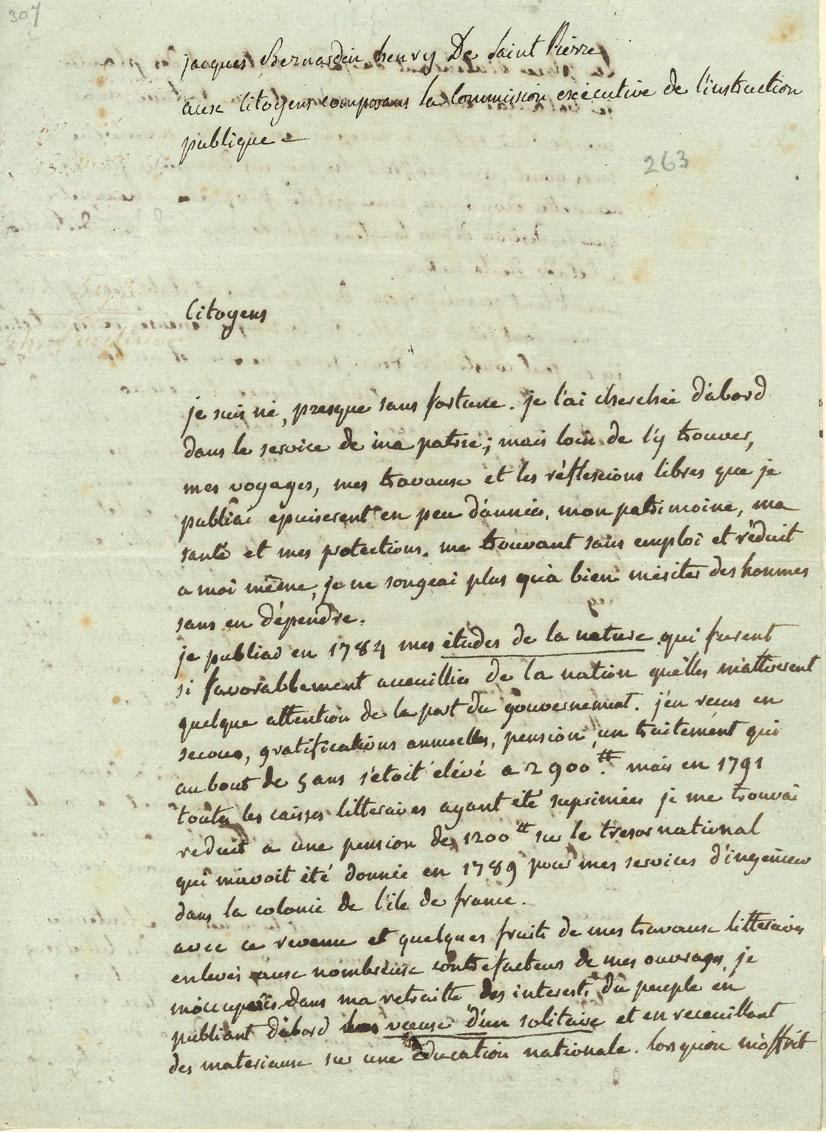 307
jacques Bernardin henry De Saint Pierre
aux citoyens composans la Commission exécutive de l'instruction
publique
263
Citoyens
je suis né, presque sans fortune. je l'ai cherchée d'abord
dans le service de ma patrie; mais loin de l'y trouver,
mes voyages, mes travaux et les réflexions libres que je
publiai epuiserent en peu d'années, mon patrimoine, ma
santé et mes protections. me trouvant sans emploi et réduit
a moi même, je ne songeai plus qu'a bien mériter des hommes
sans en dépendre.
je publiai en 1784 mes études de la nature qui furent
si favorablement accueillies de la nation qu'elles m'attirerent
quelque attention de la part du gouvernement. j'en recus en
secours, gratifications annuelles, pension, un traitement qui
au bout de 5 ans s'étoit élévé a 2900tt mais en 1791
toutes les caisses litteraires ayant été suprimées je me trouvai
reduit a une pension de 1200tt sur le tresor national
qui m'avoit été donnée en 1789 pour mes services d'ingénieur
dans la colonie de l'ile de france.
avec ce revenu et quelques fruits de mes travaux litteraires
enlevés aux nombreux contrefacteurs de mes ouvrages, je
m'occupois dans ma retraitte des interests du peuple en
publiant d'abord les vœux d'un solitaire et en receuillant
des materiaux sur une éducation nationale. lorsqu'on m'offrit